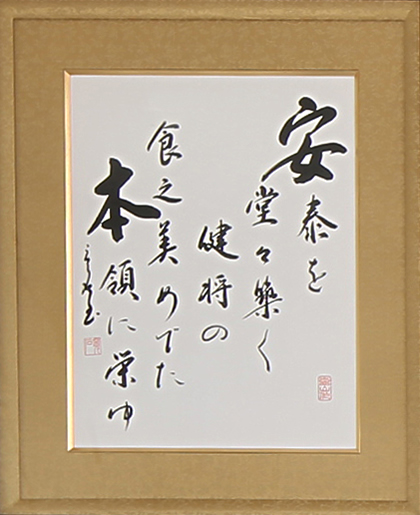 安泰を
堂々築く
健将の
食之美めでた
本領に栄ゆ